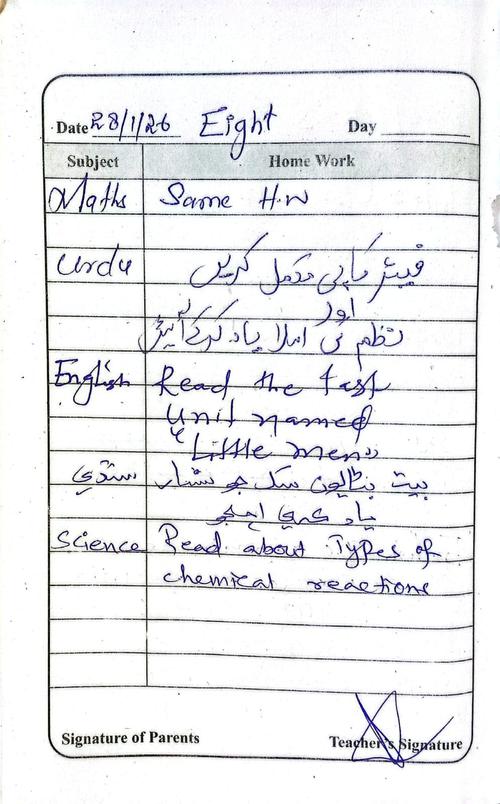 Date 28/1/26 Eight Day
Subject Home Work
Maths Same H.W
Urdu فیئر کاپی مکمل کریں
اور
نظم کی املا یاد کرکے آئیں
English Read the last
Unit named
"Little men"
سنڌي بيت
ياد ڪري اچجو
Science Read about Types of
chemical reactions
Signature of Parents Teacher's Signature